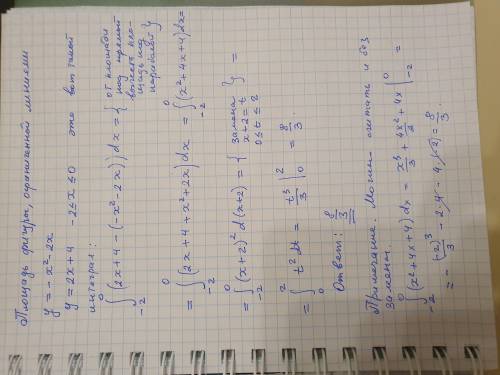 Площадь фигуры, ограниченной линиями
y = -x² - 2x
y = 2x + 4   -2 ≤ x ≤ 0   это вот такой
интеграл:
∫₋₂⁰ (2x + 4 - (-x² - 2x)) dx = { от площади под прямой вычесть площадь под параболой } =
= ∫₋₂⁰ (2x + 4 + x² + 2x) dx = ∫₋₂⁰ (x² + 4x + 4) dx =
= ∫₋₂⁰ (x + 2)² d(x + 2) = { замена x + 2 = t 0 ≤ t ≤ 2 } =
= ∫₀² t² dt = t³/3 |₀² = 8/3
Ответ: 8/3
Примечание. Можно считать и без
замены.
∫₋₂⁰ (x² + 4x + 4) dx = x³/3 + 4x²/2 + 4x |₋₂⁰ =
= - (-2)³/3 - 2·4 - 4·(-2) = 8/3.